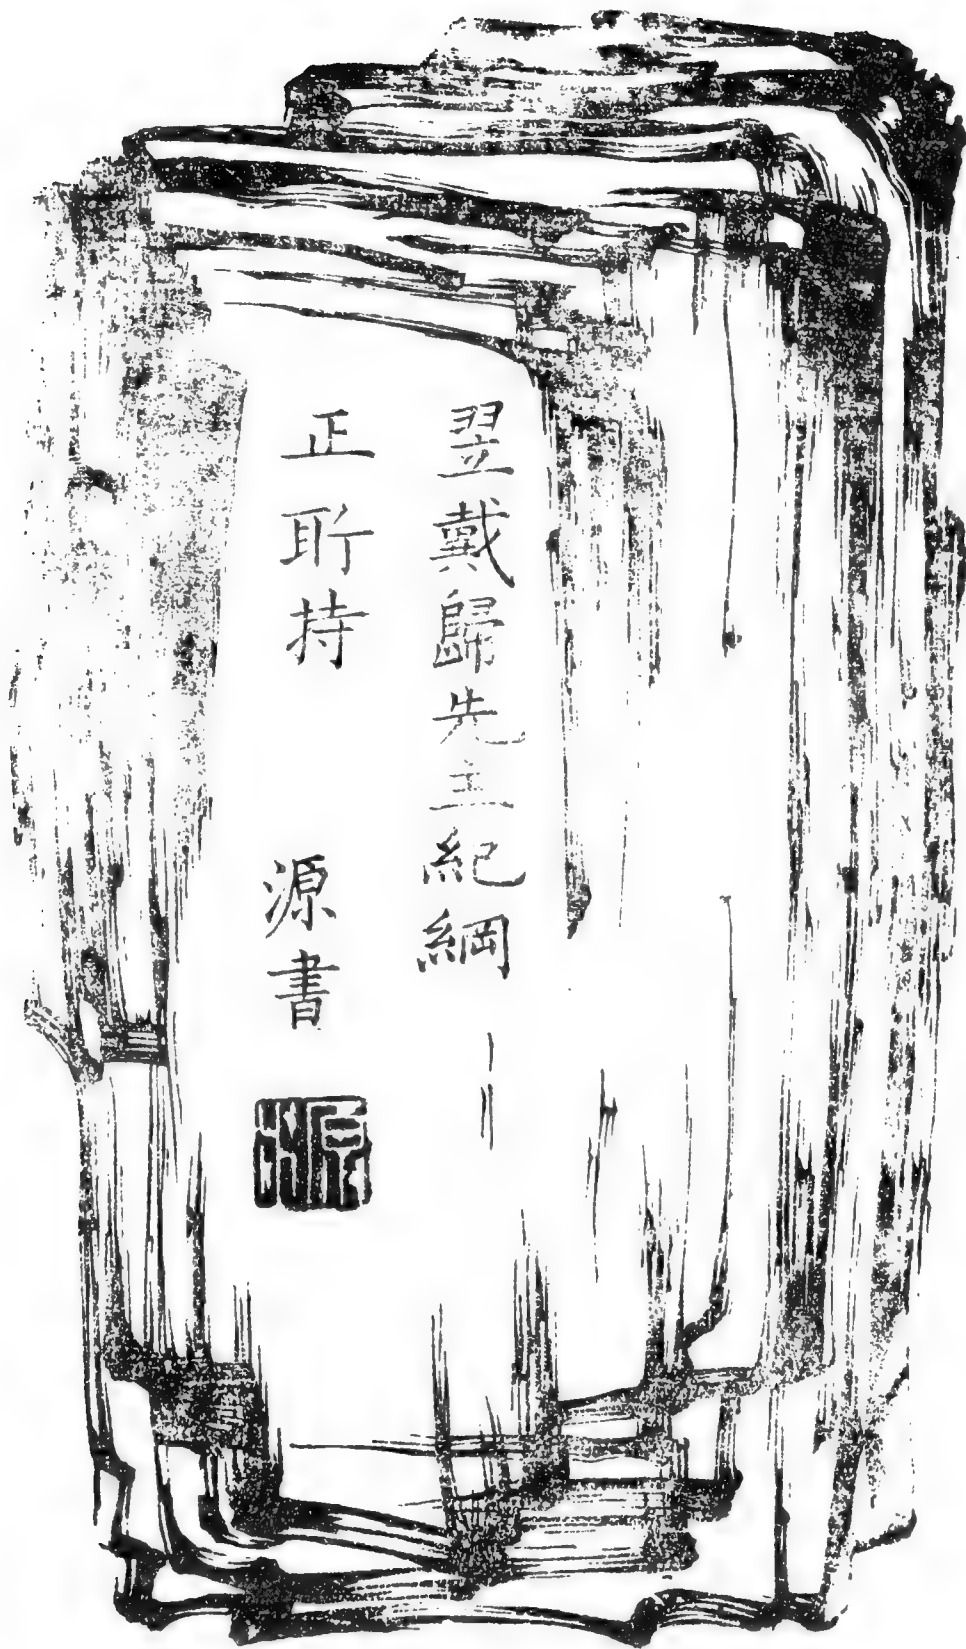 翌戴歸先主紀綱
正所持 源書
源